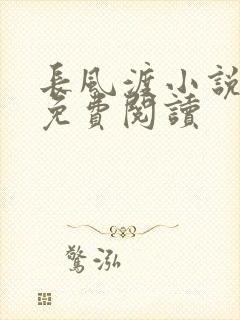 長風渡小說
免費閱讀
驚泓